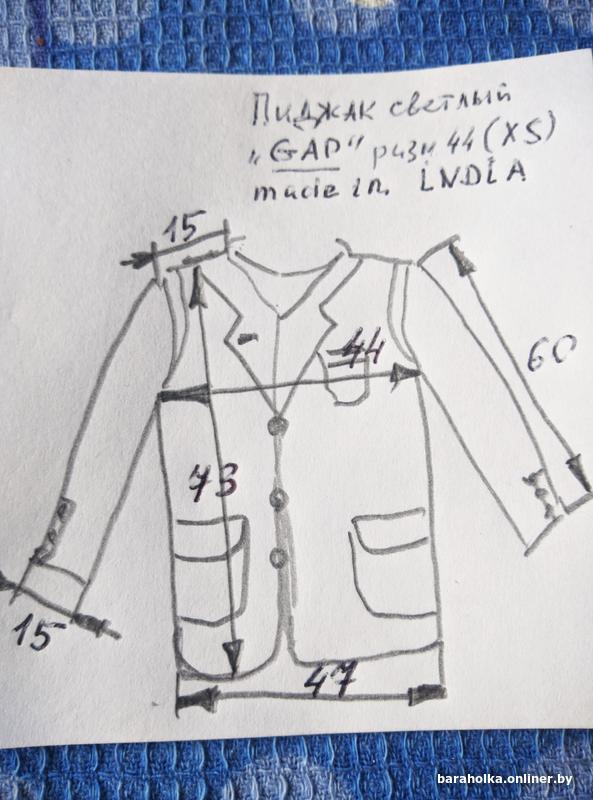 Пиджак светлый
„GAP“ разм 44 (XS)
made in. INDIA
15
44
60
73
15
47
baraholka.onliner.by